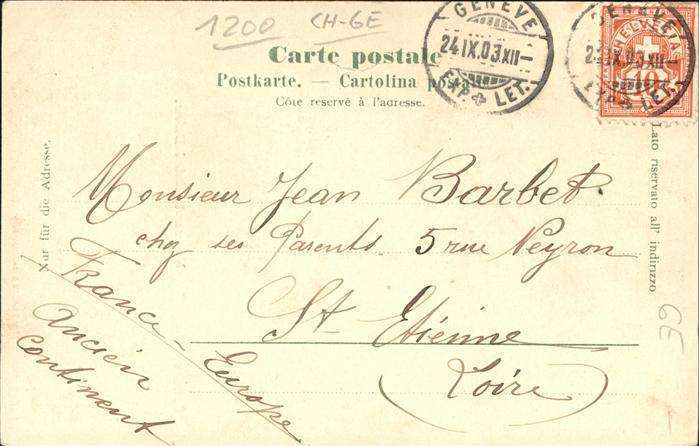 1200 CH-GE
Carte postale
Postkarte. — Cartolina posta
Côté réservé à l'adresse.
GENÈVE
24.IX.03.XII—
EXP. LET.
GENÈVE
24.IX.03.XII—
EXP. LET.
HELVETIA
10
Nur für die Adresse.
Lato riservato all' indirizzo
Monsieur Jean Barbet
chez ses Parents. 5 rue Neyron
St Etienne
(Loire)
France - Europe
Ancien
Continent
39